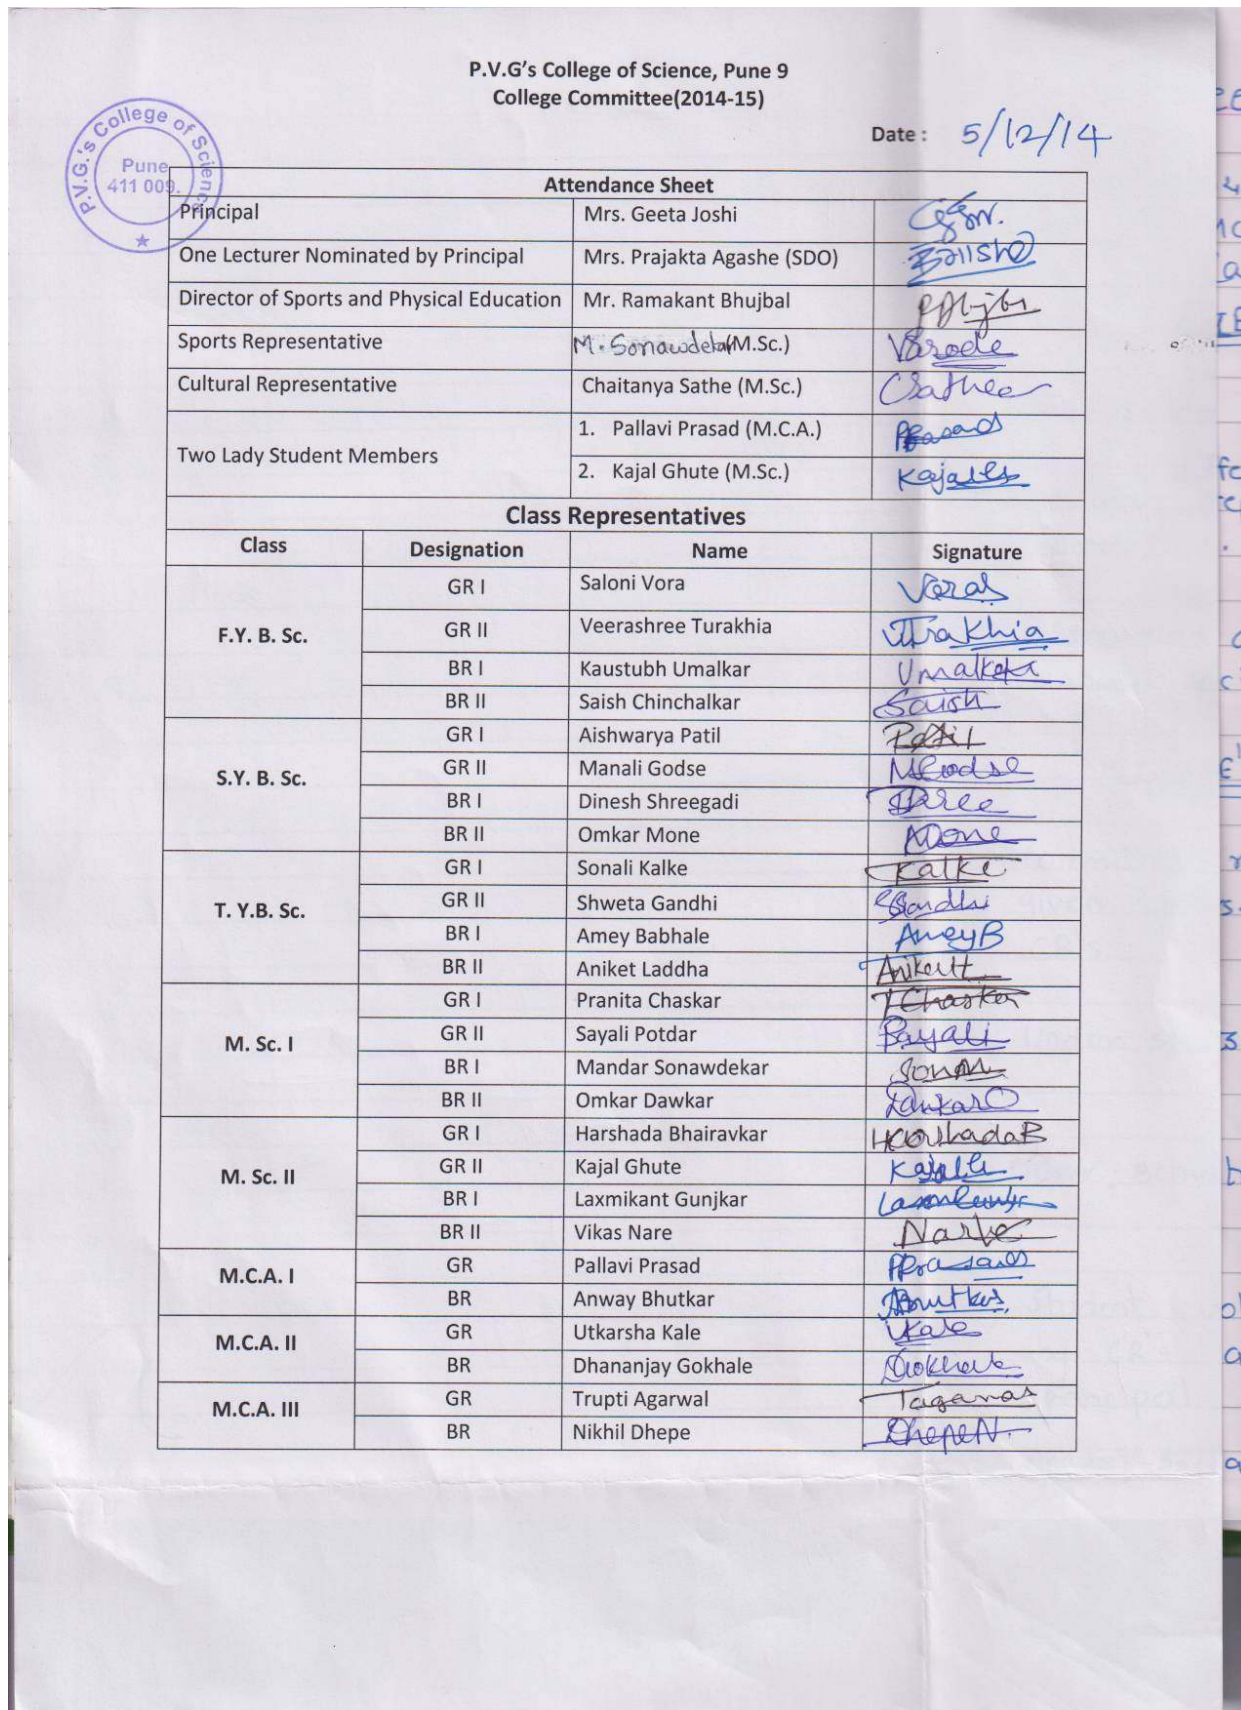 P.V.G's College of Science, Pune 9
College Committee(2014-15)
Date : 5/12/14
P.V.G.'s College of Science
Pune
411 009.
Attendance Sheet
Principal Mrs. Geeta Joshi
One Lecturer Nominated by Principal Mrs. Prajakta Agashe (SDO)
Director of Sports and Physical Education Mr. Ramakant Bhujbal
Sports Representative M. Sonawdekar (M.Sc.)
Cultural Representative Chaitanya Sathe (M.Sc.)
Two Lady Student Members
1. Pallavi Prasad (M.C.A.) PPrasad
2. Kajal Ghute (M.Sc.)
Class Representatives
Class Designation Name Signature
F.Y. B. Sc.
GR I Saloni Vora
GR II Veerashree Turakhia
BR I Kaustubh Umalkar Umalkar
BR II Saish Chinchalkar Saish
S.Y. B. Sc.
GR I Aishwarya Patil Patil
GR II Manali Godse MGodse
BR I Dinesh Shreegadi Shree
BR II Omkar Mone Mone
T. Y.B. Sc.
GR I Sonali Kalke Kalke
GR II Shweta Gandhi SGandhi
BR I Amey Babhale AmeyB
BR II Aniket Laddha
M. Sc. I
GR I Pranita Chaskar
GR II Sayali Potdar
BR I Mandar Sonawdekar
BR II Omkar Dawkar DawkarO
M. Sc. II
GR I Harshada Bhairavkar HarshadaB
GR II Kajal Ghute
BR I Laxmikant Gunjkar
BR II Vikas Nare
M.C.A. I
GR Pallavi Prasad PPrasad
BR Anway Bhutkar
M.C.A. II
GR Utkarsha Kale UKale
BR Dhananjay Gokhale
M.C.A. III
GR Trupti Agarwal
BR Nikhil Dhepe DhepeN.